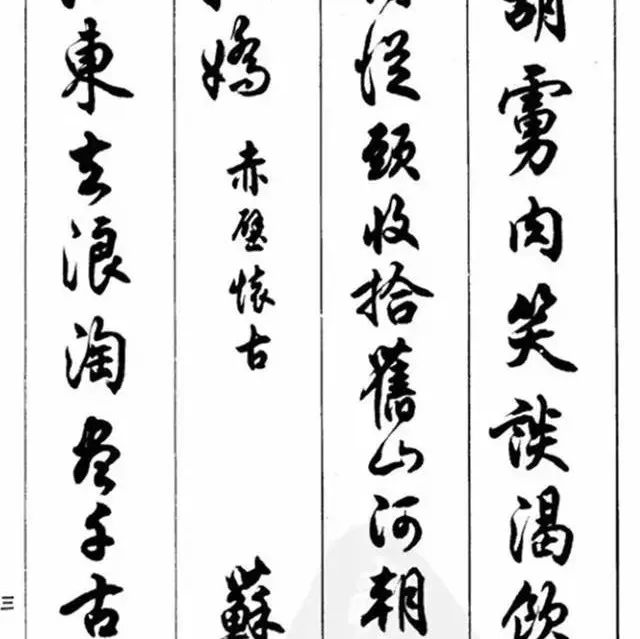 胡虜肉笑談渴飲
從頭收拾舊山河朝
嬌 赤壁懷古 蘇
東去浪淘盡千古
三